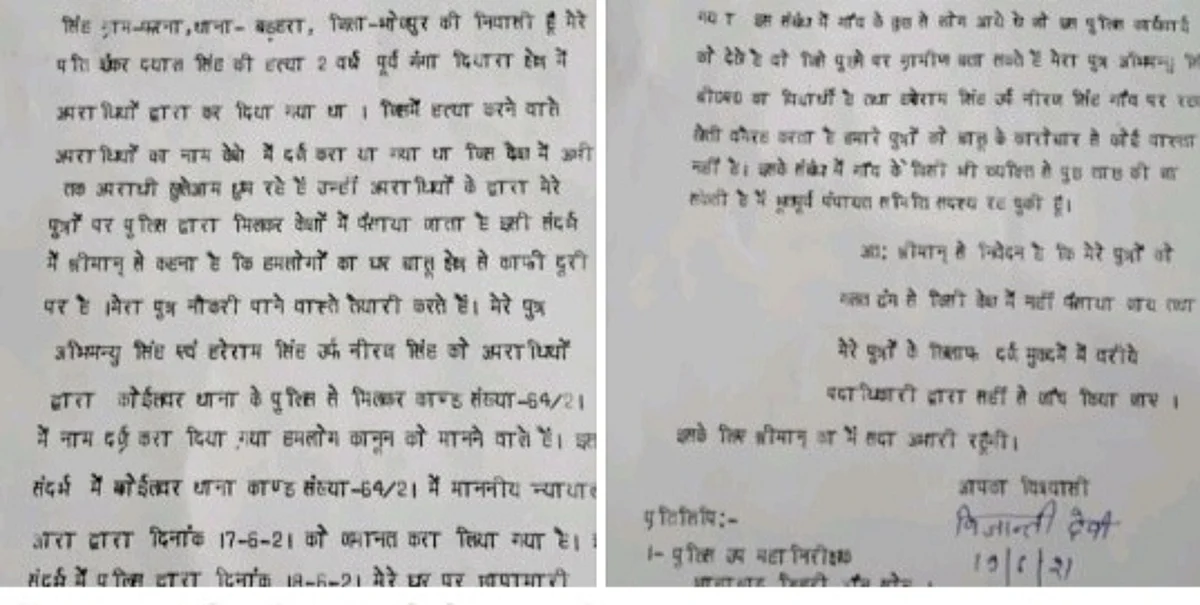 सिंह ग्राम-परना, थाना- बड़हरा, जिला-भोजपुर की निवासी हूँ मेरे
पति शंकर दयाल सिंह की हत्या 2 वर्ष पूर्व गंगा दियारा क्षेत्र में
अपराधियों द्वारा कर दिया गया था । जिसमें हत्या करने वाले
अपराधियों का नाम केश में दर्ज कराया गया था जिस केश में अभी
तक अपराधी खुलेआम घुम रहे हैं उन्हीं अपराधियों के द्वारा मेरे
पुत्रों पर पुलिस द्वारा मिलकर केशों में फँसाया जाता है इसी संदर्भ
में श्रीमान् से कहना है कि हमलोगों का घर बालू क्षेत्र से काफी दुरी
पर है ।मेरा पुत्र नौकरी पाने वास्ते तैयारी करते हैं। मेरे पुत्र
अभिमन्यु सिंह एवं हरेराम सिंह उर्फ नीरज सिंह को अपराधियों
द्वारा कोईलवर थाना के पुलिस से मिलकर काण्ड संख्या-64/21
में नाम दर्ज करा दिया गया हमलोग कानून को मानने वाले हैं। इस
संदर्भ में कोईलवर थाना काण्ड संख्या-64/21 में माननीय न्यायाल
आरा द्वारा दिनांक 17-6-21 को जमानत करा लिया गया है।
संदर्भ में पुलिस द्वारा दिनांक 18-6-21 मेरे घर पर छापामारी
गया इस संबंध में गाँव के बहुत से लोग आये थे जो इस पुलिस कार्रवाई
को देखे है वो जिसे पुछने पर ग्रामीण बता सकते हैं मेरा पुत्र अभिमन्यु सिं
बी0ए0 का विधार्थी है तथा हरेराम सिंह उर्फ नीरज सिंह गाँव पर रह
खेती वगैरह करता है हमारे पुत्रों को बालू के कारोबार से कोई वास्ता
नहीं है। इसके संबंध में गाँव के किसी भी व्यक्ति से पुछ ताछ की जा
सकती है मैं भूतपूर्व पंचायत समिति सदस्य रह चुकी हूँ।
अत: श्रीमान् से निवेदन है कि मेरे पुत्रों को
गलत ढंग से किसी केश में नहीं फँसाया जाय तथा
मेरे पुत्रों के खिलाफ दर्ज मुकदमें में वरीय
पदाधिकारी द्वारा सही से जाँच किया जाय ।
इसके लिए श्रीमान् का मैं सदा आभारी रहूँगी।
आपका विश्वासी
विजान्ती देवी
19/6/21
प्रतिलिपि:-
1- पुलिस उप महानिरीक्षक